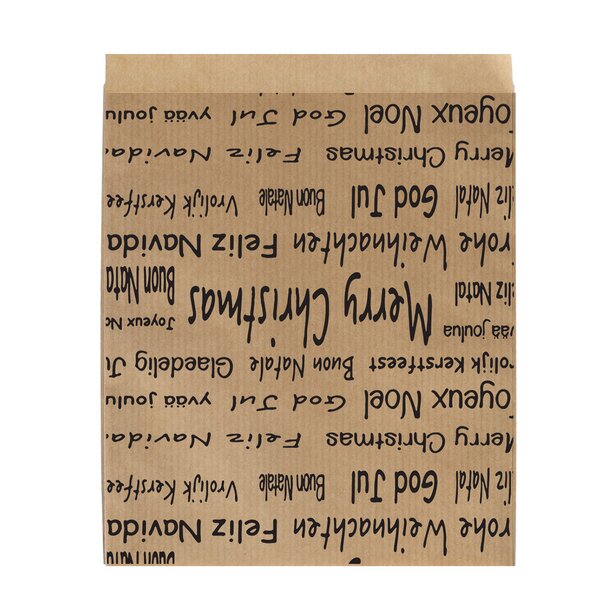 Buon Nata
rohe Weihnachten Feliz Navida
iz Natal God Jul Buon Natale Vrolijk Kerstfee
Merry Christmas Feliz Navida
oyeux Noel God Jul yvää joulu
rolijk Kerstfeest Buon Natale Glaedelig Ju
vää joulua Merry Christmas Joyeux No
iz Natal Buon Nata
rohe Weihnachten Feliz Navida
iz Natal God Jul Buon Natale Vrolijk Kerstfee
Merry Christmas Feliz Navida
oyeux Noel God Jul yvää joulu